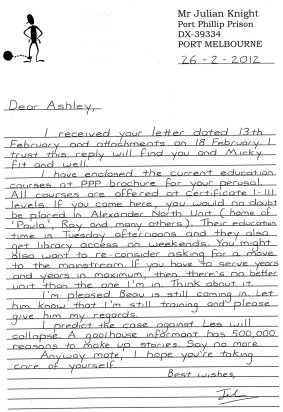 Mr Julian Knight
Port Phillip Prison
DX-39334
PORT MELBOURNE
26-2-2012
Dear Ashley,
I received your letter dated 13th
February and attachments on 18 February. I
trust this reply will find you and Micky
fit and well.
I have enclosed the current education
courses at PPP brochure for your perusal.
All courses are offered at certificate I-III
levels. If you came here, you would no doubt
be placed in Alexander North Unit (home of
'Paula', Ray and many others). Their education
time is Tuesday afternoons and they also
get library access on weekends. You might
also want to re-consider asking for a move
to the mainstream. If you have to serve years
and years in maximum, then there's no better
unit than the one I'm in. Think about it.
I'm pleased Beau is still coming in. Let
him know that I'm still training and please
give him my regards.
I predict the case against Les will
collapse. A gaolhouse informant has 500,000
reasons to make up stories. Say no more.
Anyway mate, I hope you're taking
care of yourself.
Best wishes,